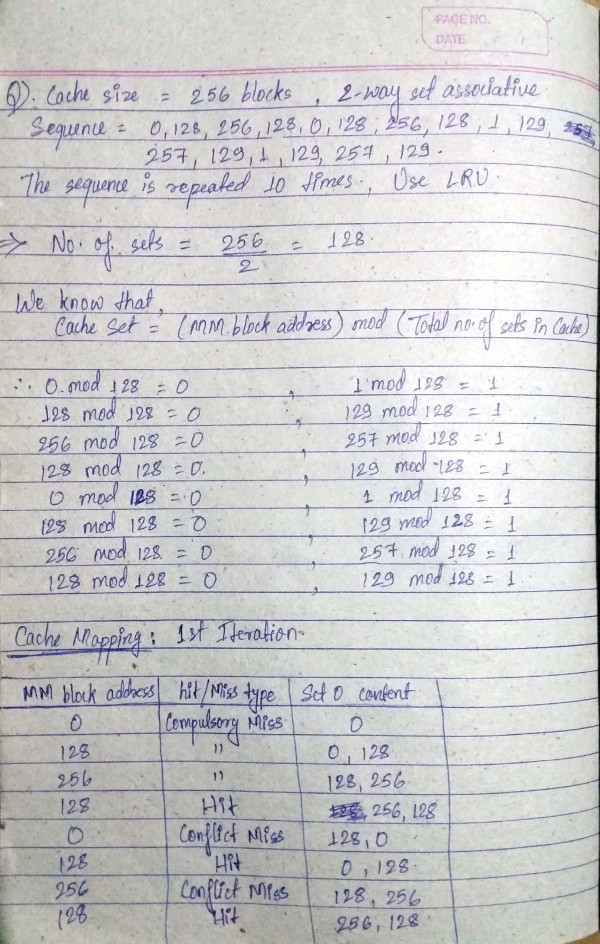 PAGE NO.
DATE
Q). Cache size = 256 blocks , 2-way set associative.
Sequence = 0,128, 256, 128, 0, 128, 256, 128, 1, 129,
257, 129, 1, 129, 257, 129.
The sequence is repeated 10 times., Use LRU.
⇒ No. of. sets = 256/2 = 128.
We know that,
Cache Set = (MM block address) mod (Total no. of sets in Cache)
∴ 0 mod 128 = 0 , 1 mod 128 = 1
128 mod 128 = 0 , 129 mod 128 = 1
256 mod 128 = 0 , 257 mod 128 = 1
128 mod 128 = 0. , 129 mod 128 = 1
0 mod 128 = 0 , 1 mod 128 = 1
128 mod 128 = 0 , 129 mod 128 = 1
256 mod 128 = 0 , 257 mod 128 = 1
128 mod 128 = 0 , 129 mod 128 = 1
Cache Mapping : 1st Iteration.
MM block address hit/Miss type Set 0 content
0 Compulsory Miss 0
128 " 0, 128
256 " 128, 256
128 Hit 256, 128
0 Conflict Miss 128, 0
128 Hit 0, 128
256 Conflict Miss 128, 256
128 Hit 256, 128